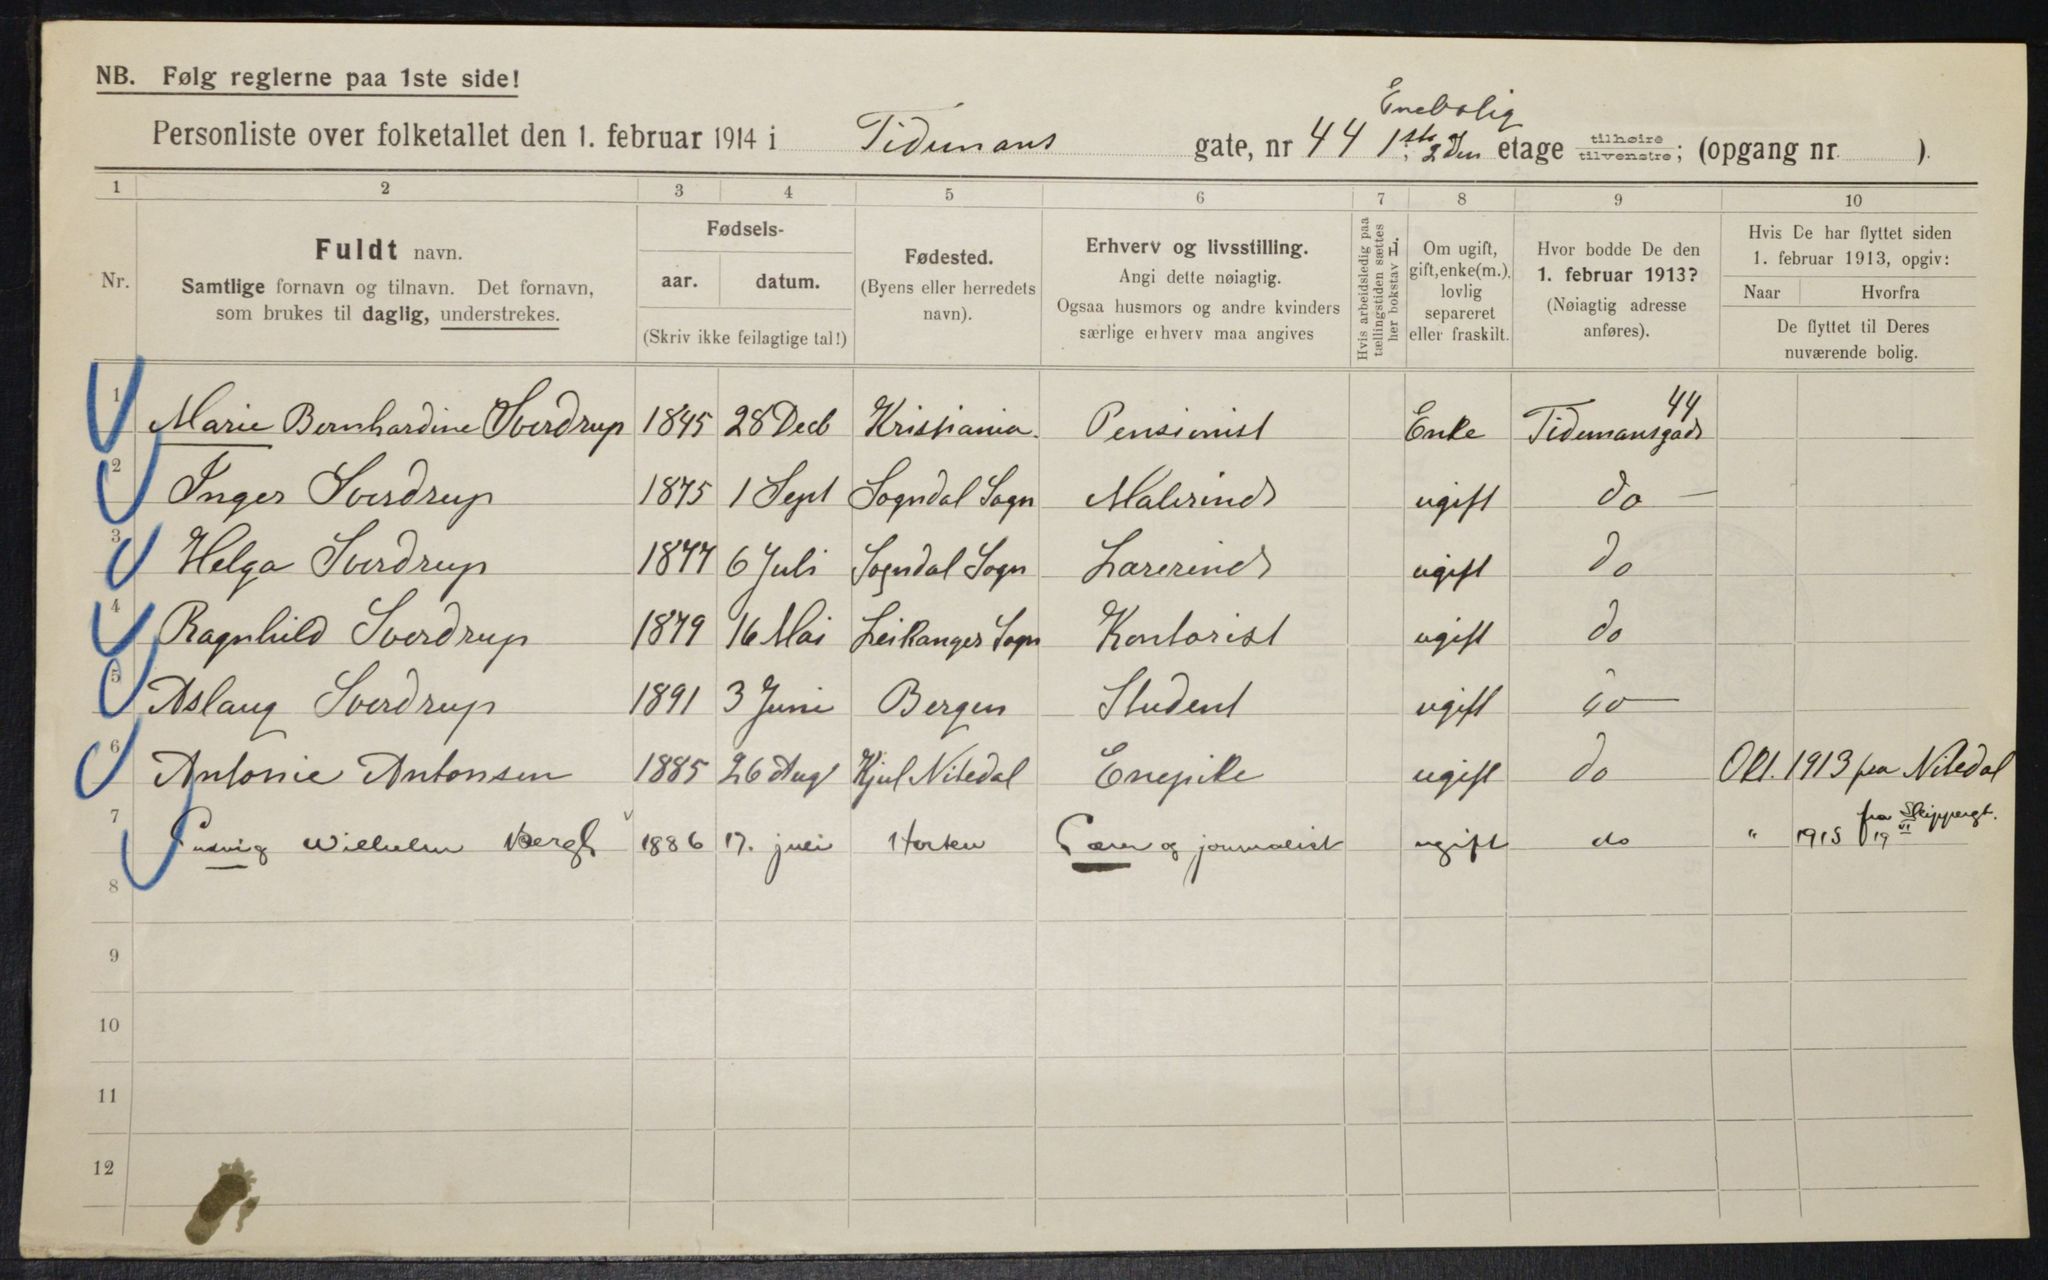 NB. Følg reglerne paa 1ste side!
Enebolig
Personliste over folketallet den 1. februar 1914 i Tidemans gate, nr 44 1ste 2den etage tilhøire tilvenstre; (opgang nr. )
1 2 3 4 5 6 7 8 9 10
Nr.
Fuldt navn.
Samtlige fornavn og tilnavn. Det fornavn,
som brukes til daglig, understrekes.
Fødsels-
aar. datum.
(Skriv ikke feilagtige tal!)
Fødested.
(Byens eller herredets
navn).
Erhverv og livsstilling.
Angi dette nøiagtig.
Ogsaa husmors og andre kvinders
særlige erhverv maa angives
Hvis arbeidsledig paa
tællingstiden sættes
her bokstav L.
Om ugift,
gift, enke(m.),
lovlig
separeret
eller fraskilt.
Hvor bodde De den
1. februar 1913?
(Nøiagtig adresse
anføres).
Hvis De har flyttet siden
1. februar 1913, opgiv:
Naar Hvorfra
De flyttet til Deres
nuværende bolig.
1 Marie Bernhardine Sverdrup 1845 28 Decb Kristiania. Pensionist Enke Tidemansgade 44
2 Inger Sverdrup 1875 1 Sept Sogndal Sogn Malerinde ugift do —
3 Helga Sverdrup 1877 6 Juli Sogndal Sogn Lærerinde ugift do
4 Ragnhild Sverdrup 1879 16 Mai Leikanger Sogn Kontorist ugift do
5 Aslaug Sverdrup 1891 3 Juni Bergen Student ugift do —
6 Antonie Antonsen 1885 26 Aug Kjul Nitedal Enepike ugift do Okt. 1913 fra Nitedal
7 Ludvig Wilhelm Bergh 1886 17. juli Horten Lærer og journalist ugift do " 1913 fra Skippergt. 19 VI
8
9
10
11
12